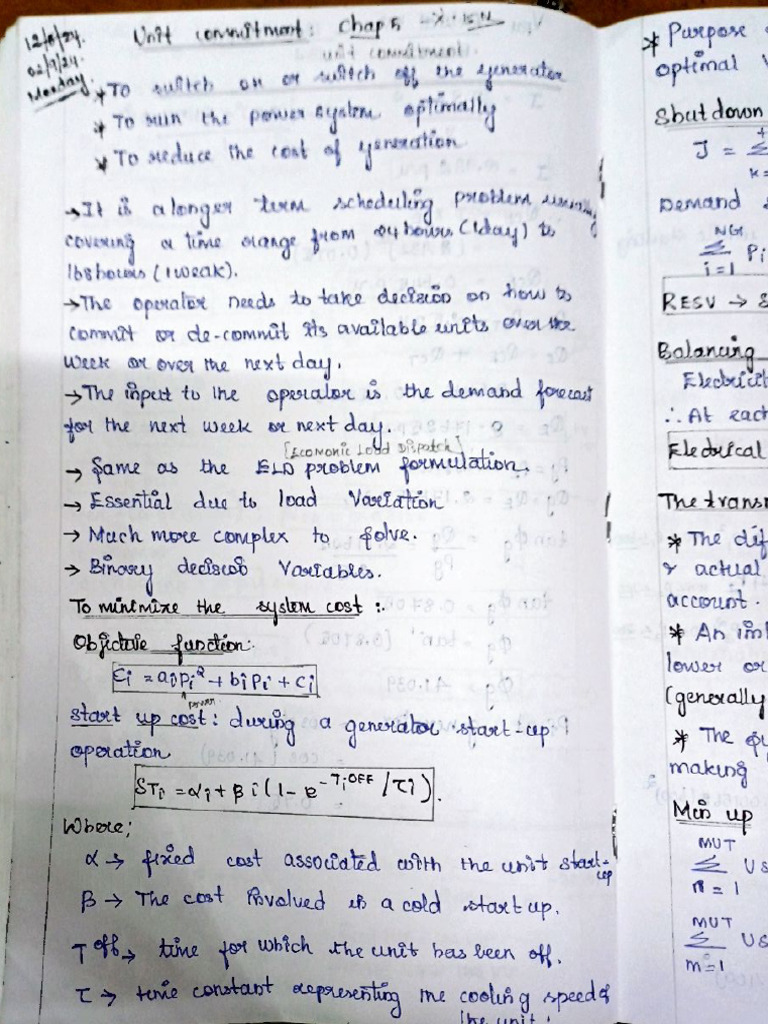 12/8/24.
02/9/24.
Monday.
Unit commitment: Chap 5
unit commitment.
* To switch on or switch off the generator
* To run the power system optimally
* To reduce the cost of generation
→ It is a longer term scheduling problem usually
covering a time range from 24 hours (1day) to
168 hours (1 weak).
→ The operator needs to take decision on how to
commit or de-commit its available units over the
week or over the next day.
→ The input to the operator is the demand forecast
for the next week or next day.
[Economic Load Dispatch]
→ Same as the ELD problem formulation.
→ Essential due to load Variation
→ Much more complex to solve.
→ Binary decision Variables.
To minimize the system cost :.
Objective function:
Ci = aiPi² + biPi + Ci
power
start up cost: during a generator start-up
operation
STi = αi + βi (1 - e^-TiOFF/τi).
Where;
α → fixed cost associated with the unit start-up
β → The cost involved in a cold start up.
T off → time for which the unit has been off.
τ → time constant representing the cooling speed of
the unit.
* Purpose
optimal
Shutdown
J = Σ
Demand
NG
Σ Pi
i=1
RESV →
Balancing
Electricit
∴ At each
Eledrical
The transm
* The dif
& actual
account.
* An im
lower or
(generally
* The
making
Min up
MUT
Σ Us
n = 1
MUT
Σ Us
m=1